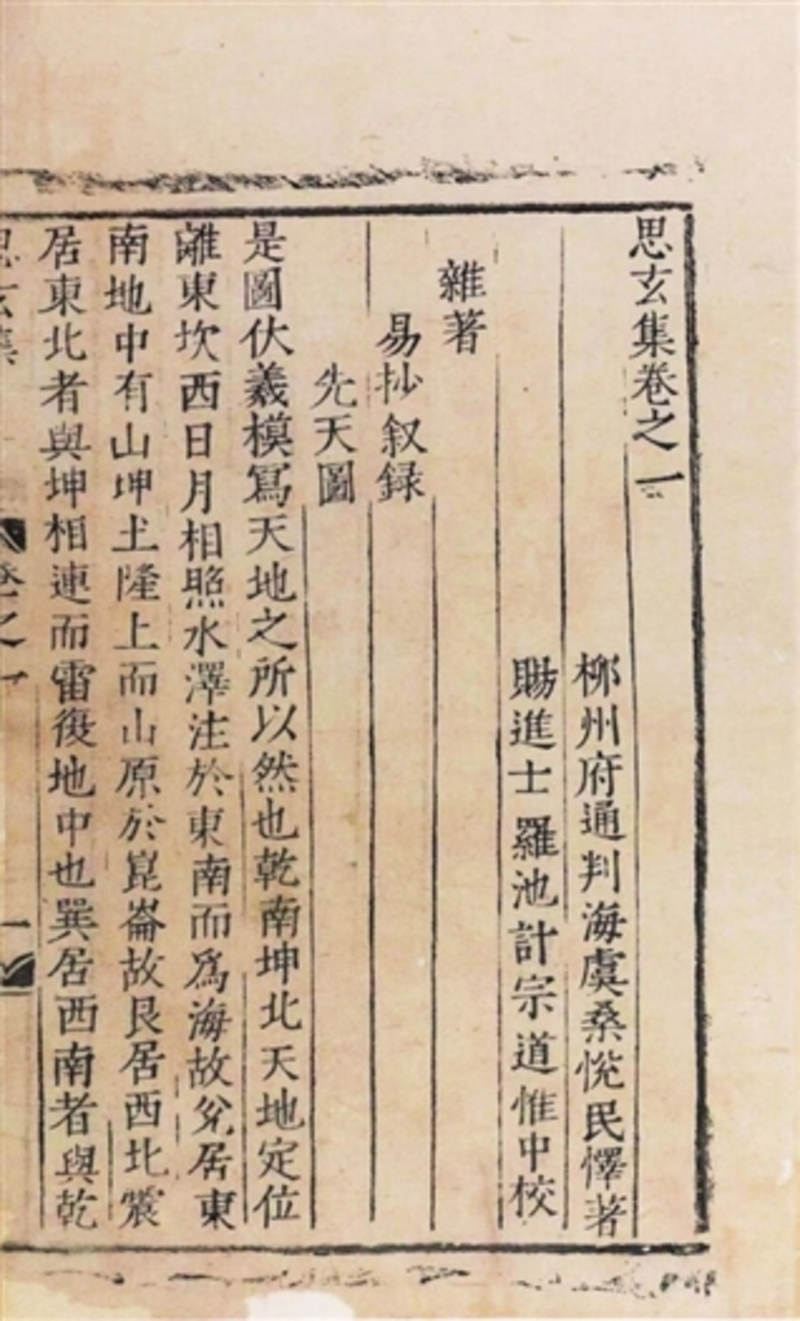 思玄集卷之一
柳州府通判海虞桑悅民懌著
賜進士羅池計宗道惟中校
雜著
易抄叙録
先天圖
是圖伏羲模寫天地之所以然也乾南坤北天地定位
離東坎西日月相照水澤注於東南而為海故兌居東
南地中有山坤土隆上而山原於崑崙故艮居西北震
居東北者與坤相連而雷復地中也巽居西南者與乾
思玄集 卷之一 一